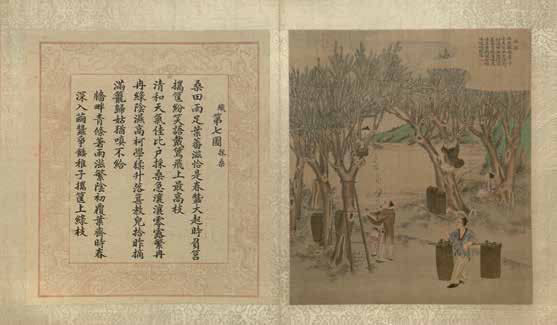 織第七圖 採桑
桑田雨足葉蕃滋恰是春蠶大起時負筥
攜筐紛笑語戴鵀飛上最高枝
清和天氣佳比戶採桑急瀼瀼零露繁冉
冉綠陰濕高柯學猱升落葚教兒拾昨摘
滿籠歸姑猶嗔不給
牆畔青條著雨滋繁陰初覆葉齊時春
深入繭蠶爭餧稚子攜筐上綠枝